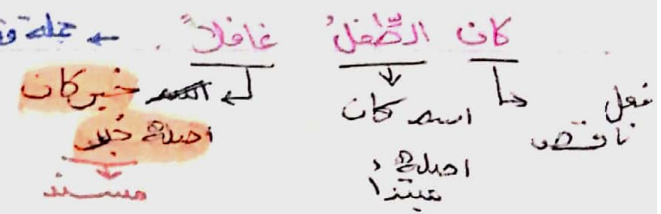 كان الطّفلُ غافلاً. ← جملة
فعل ناقص
اسم كان
اصله: مبتدأ
خبر كان
اصله خبر
مسند